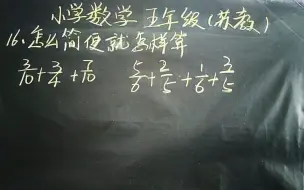 小学数学 五年级(苏教)
16.怎么简便就怎样算
3/10+3/4+7/10 5/6+2/5+1/6+3/5